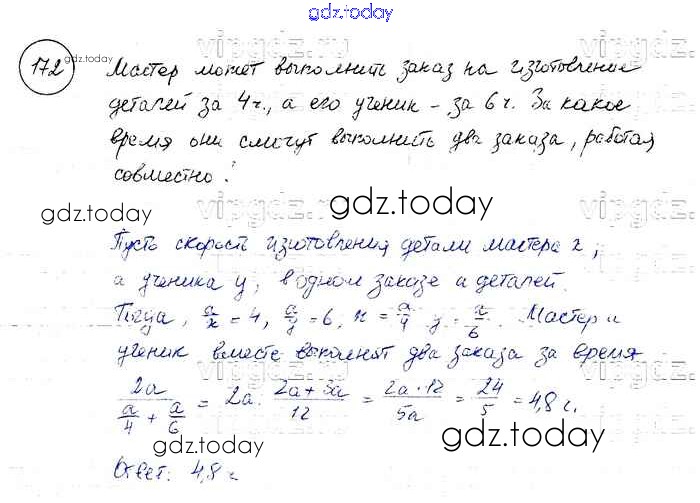 gdz.today
172
gdz.today
vipgdz.ru
Мастер может выполнить заказ на изготовление
деталей за 4 ч., а его ученик - за 6 ч. За какое
время они смогут выполнить два заказа, работая
совместно?
gdz.today
vipgdz.
gdz.today
vipgdz.
Пусть скорость изготовления детали мастера x,
а ученика y, в одном заказе a деталей.
Тогда, a/x = 4, a/y = 6, x = a/4 y = x/6. Мастер и
ученик вместе выполнят два заказа за время
2a / (a/4 + a/6) = 2a · (2a+3a)/12 = (2a·12)/5a = 24/5 = 4,8 ч.
gdz.today
gdz.today
Ответ: 4,8 ч